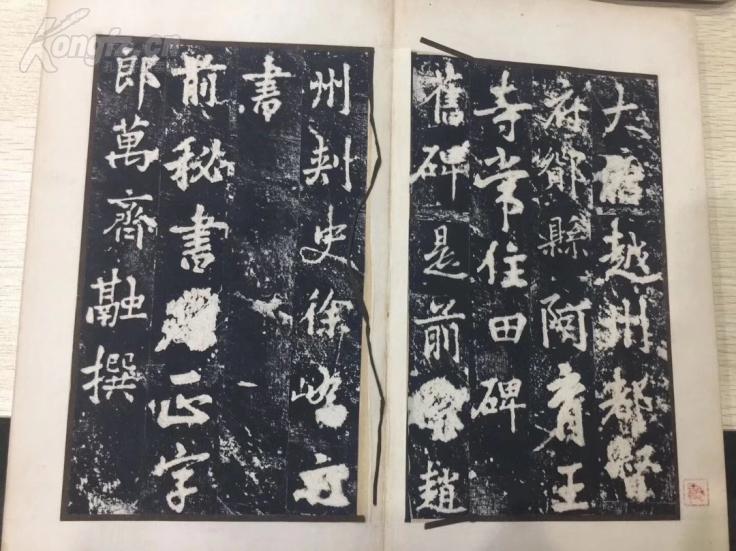 大唐越州都督
府鄮縣阿育王
寺常住田碑
舊碑是前趙
州刾史徐嶠之
書
前秘書正字
郎萬齊融撰
Kongfz.cn